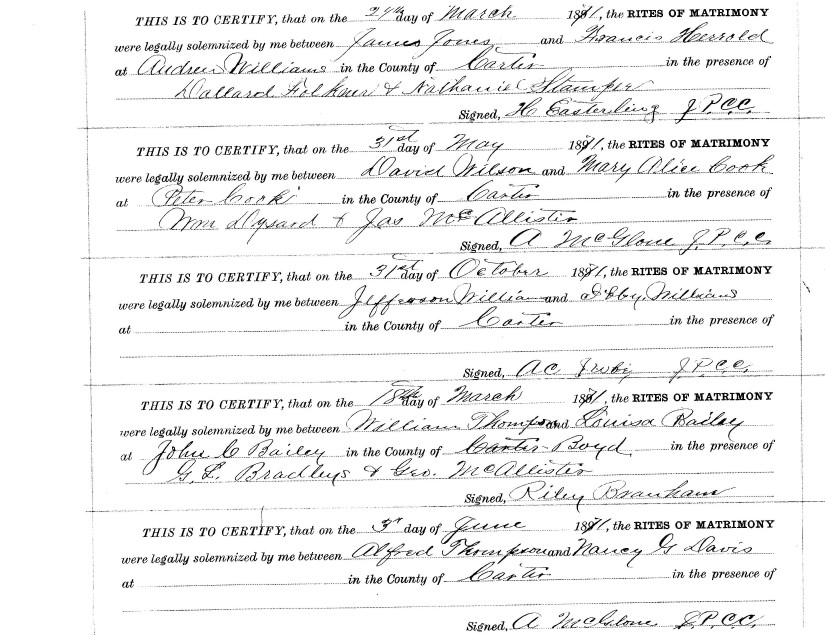 THIS IS TO CERTIFY, that on the 24th day of March 1871, the RITES OF MATRIMONY
were legally solemnized by me between James Jones and Francis Herrold
at Andrew Williams in the County of Carter in the presence of
Dallard Folkner & Nathaniel Stamper
Signed, H Easterling J.P.C.C.
THIS IS TO CERTIFY, that on the 31st day of May 1871, the RITES OF MATRIMONY
were legally solemnized by me between David Wilson and Mary Alice Cook
at Peter Cook's in the County of Carter in the presence of
Wm Dysard & Jas McAllister
Signed, A McGlone J.P.C.C.
THIS IS TO CERTIFY, that on the 31st day of October 1871, the RITES OF MATRIMONY
were legally solemnized by me between Jefferson William and Libby Williams
at in the County of Carter in the presence of
Signed, A C Irwin J.P.C.C.
THIS IS TO CERTIFY, that on the 18th day of March 1871, the RITES OF MATRIMONY
were legally solemnized by me between William Thompson and Louisa Bailey
at John C Bailey in the County of Carter Boyd in the presence of
G. L. Bradleys & Geo. McAllister
Signed, Riley Branham
THIS IS TO CERTIFY, that on the 3r day of June 1871, the RITES OF MATRIMONY
were legally solemnized by me between Alfred Thompson and Nancy G Davis
at in the County of Carter in the presence of
Signed, A McGlone J.P.C.C.